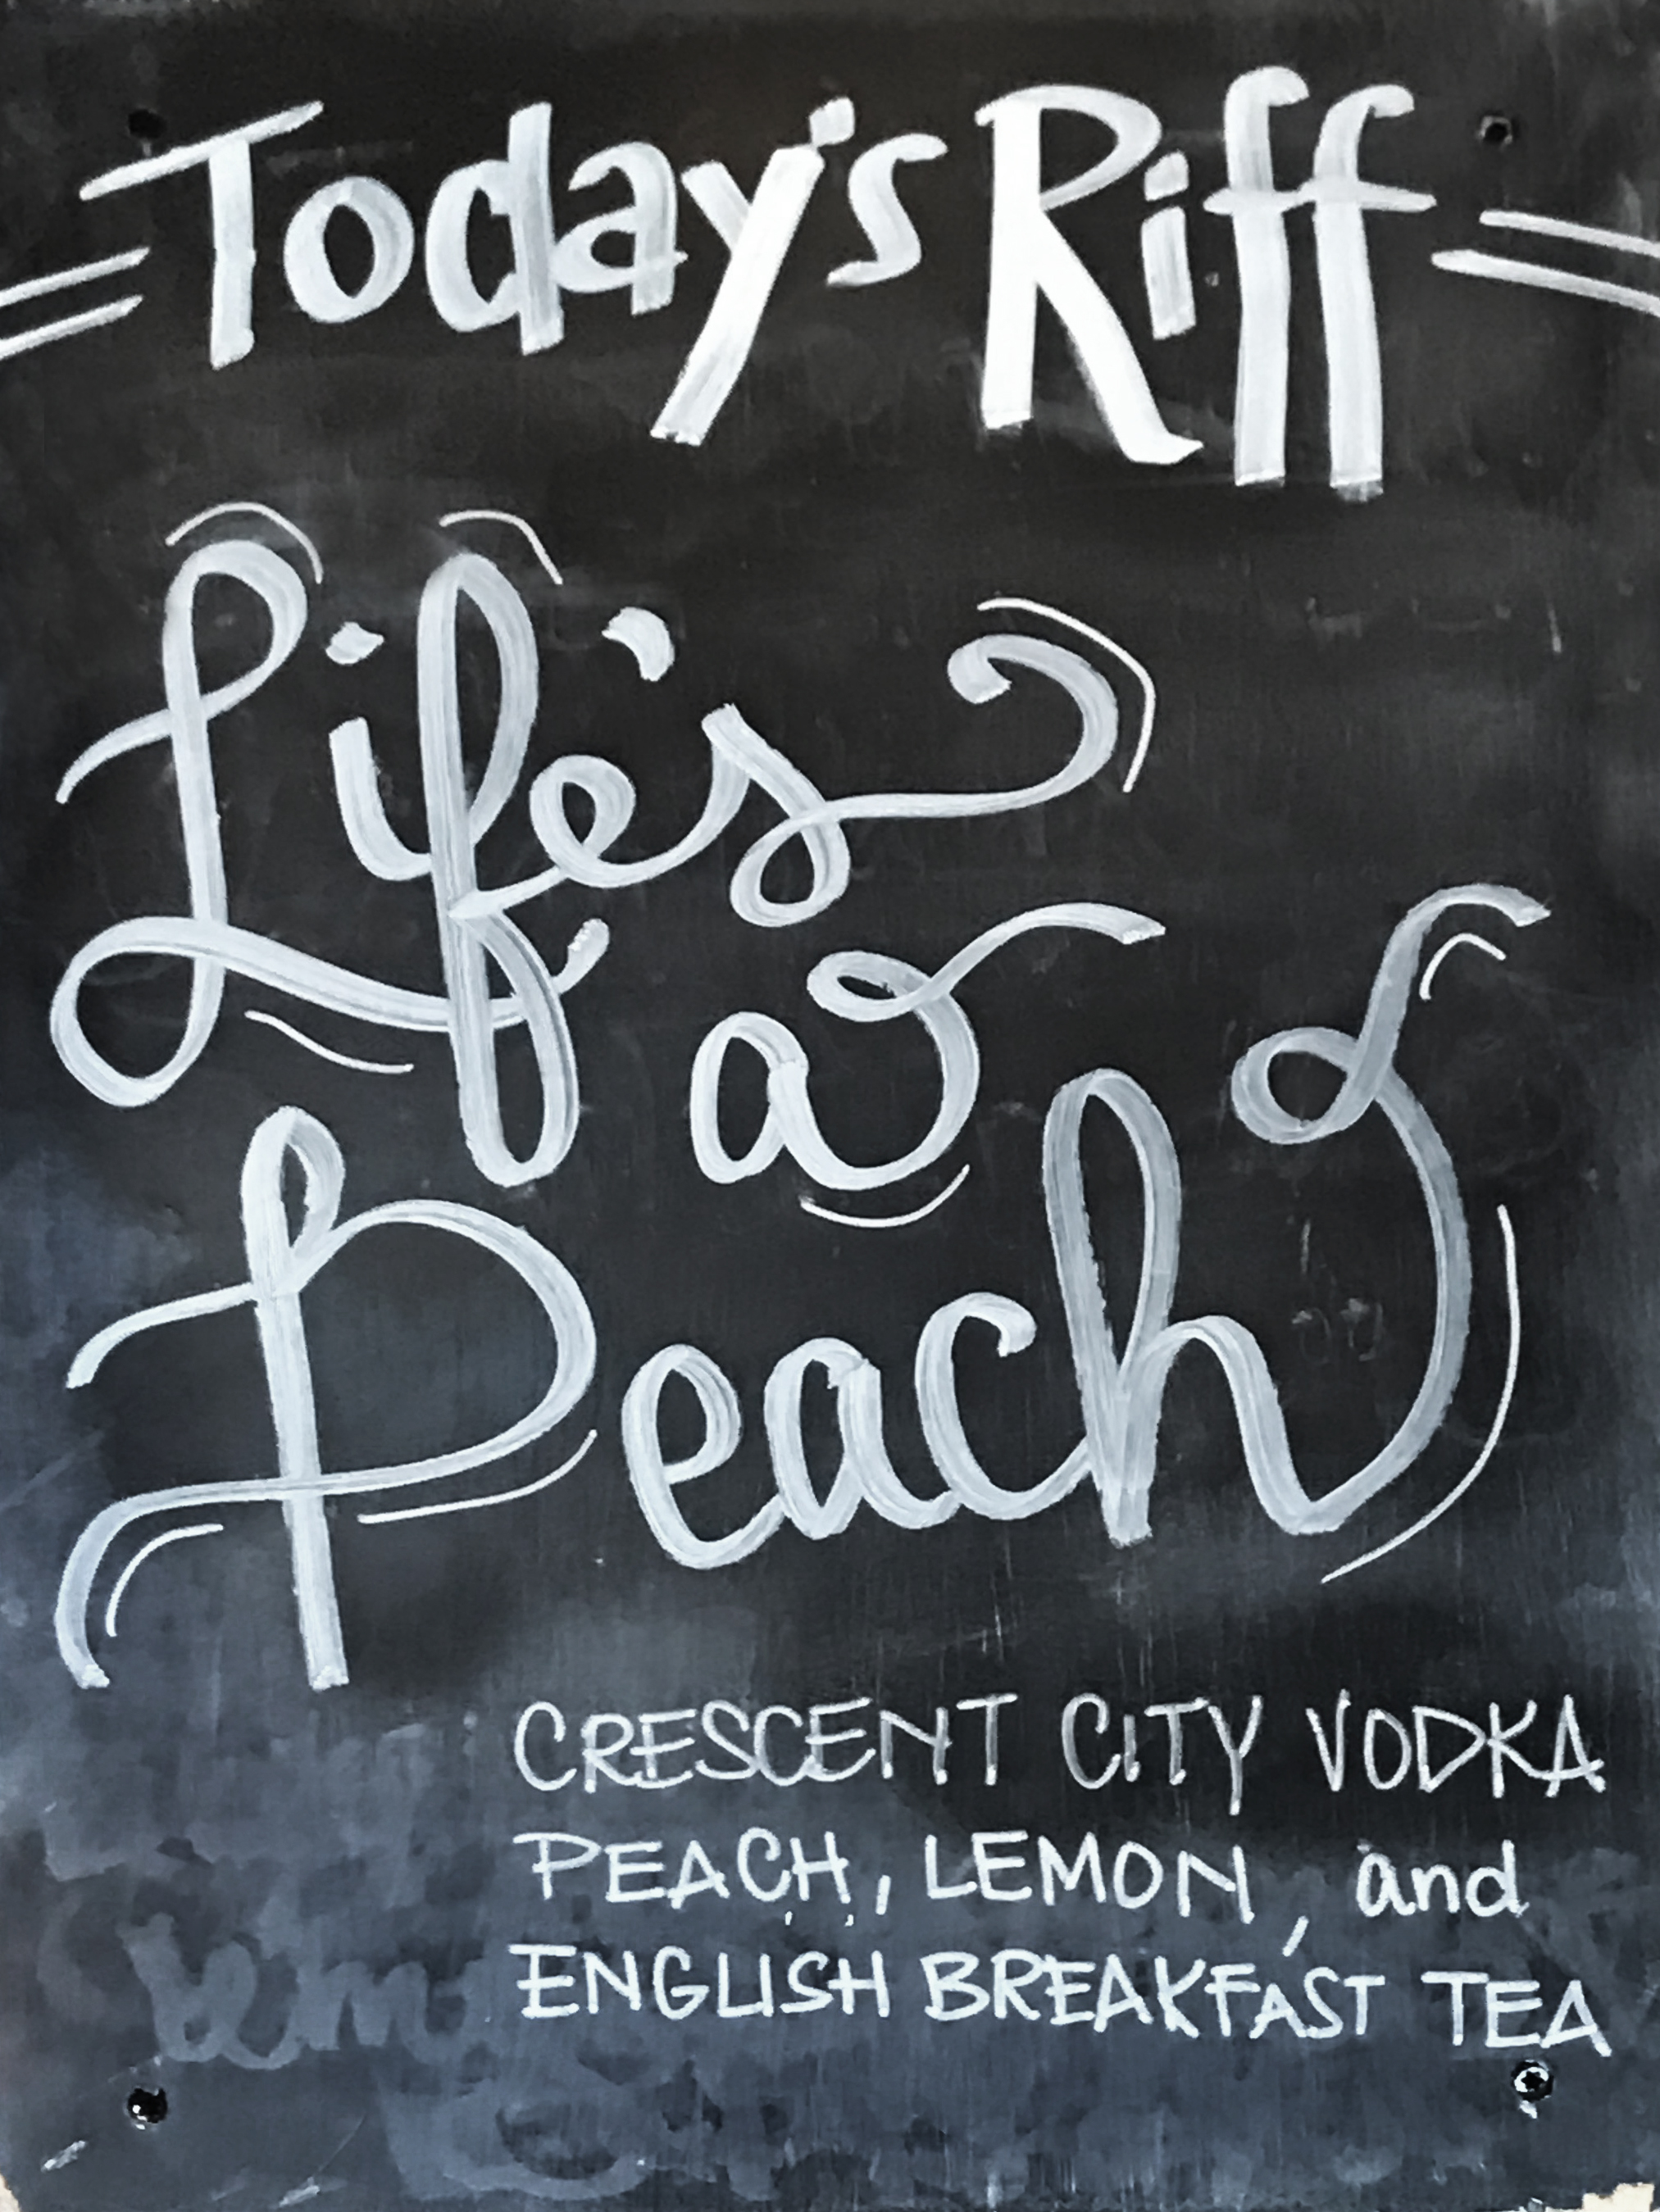 Today's Riff
Life's
a
Peach
CRESCENT CITY VODKA
PEACH, LEMON, and
ENGLISH BREAKFAST TEA